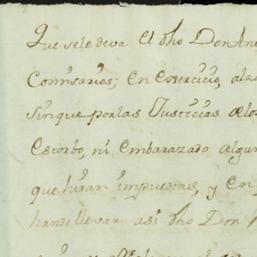 Que sele deva El dho Don An
Comisarios; En Exercicio, al
Sin que por las Justicias
Estorbo, ni Embarazado algun
que huran impuestas, y En
han de llevar asi dho Don